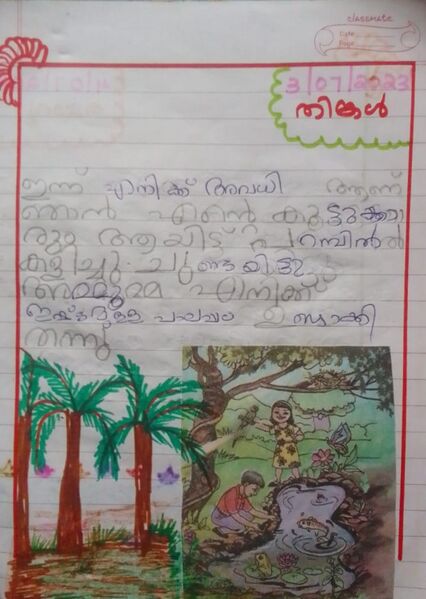 classmate
Date
Page
3/07/2023
തിങ്കൾ
ഇന്ന് എനിക്ക് അവധി ആണ്
ഞാൻ എന്റെ കൂട്ടുക്കാ
രുമ ആയിട്ട് പറമ്പിൽ
കളിച്ചു. ചൂണ്ടയിട്ടു.
അമ്മുമ്മ എനിക്ക്
ഇഷ്ടമുള്ള പലഹാരം ഉണ്ടാക്കി
തന്നു